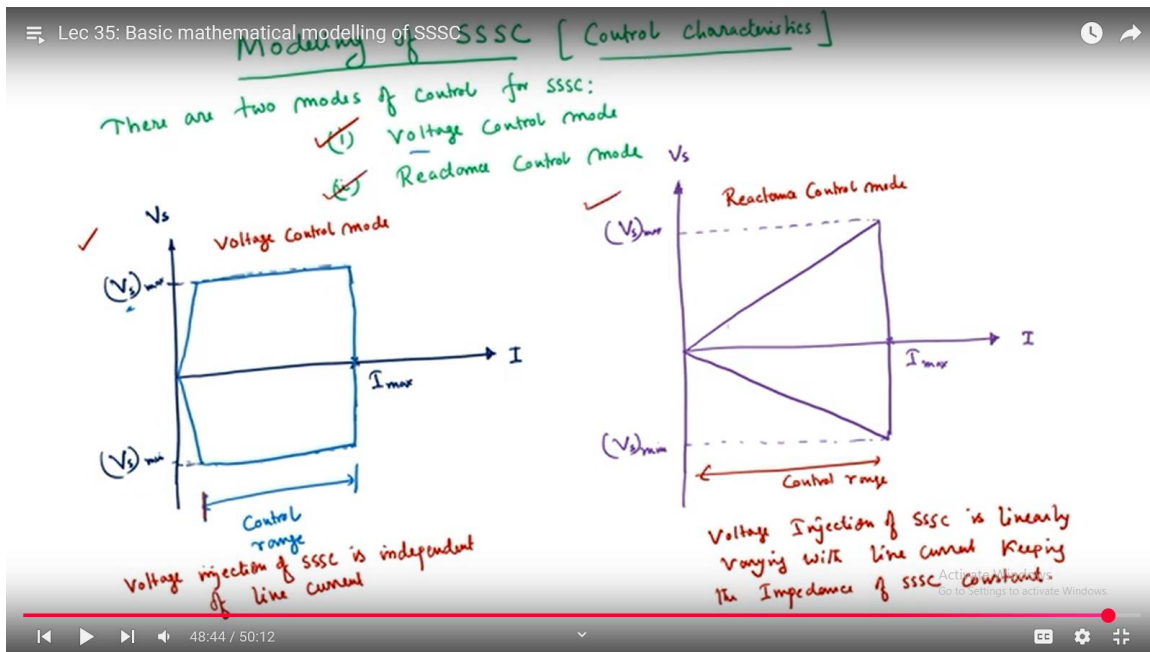 Lec 35: Basic mathematical modelling of SSSC
Modelling of SSSC [Control Characteristics]
There are two modes of control for SSSC:
(i) Voltage Control mode
(ii) Reactance Control mode
Vs
Voltage Control mode
(Vs)max
I
Imax
(Vs)min
Control
range
Voltage injection of SSSC is independent
of line current
Vs
Reactance Control mode
(Vs)max
I
Imax
(Vs)min
Control range
Voltage Injection of SSSC is linearly
varying with line current keeping
the Impedance of SSSC constant.
Activate Windows
Go to Settings to activate Windows.
48:44 / 50:12
CC